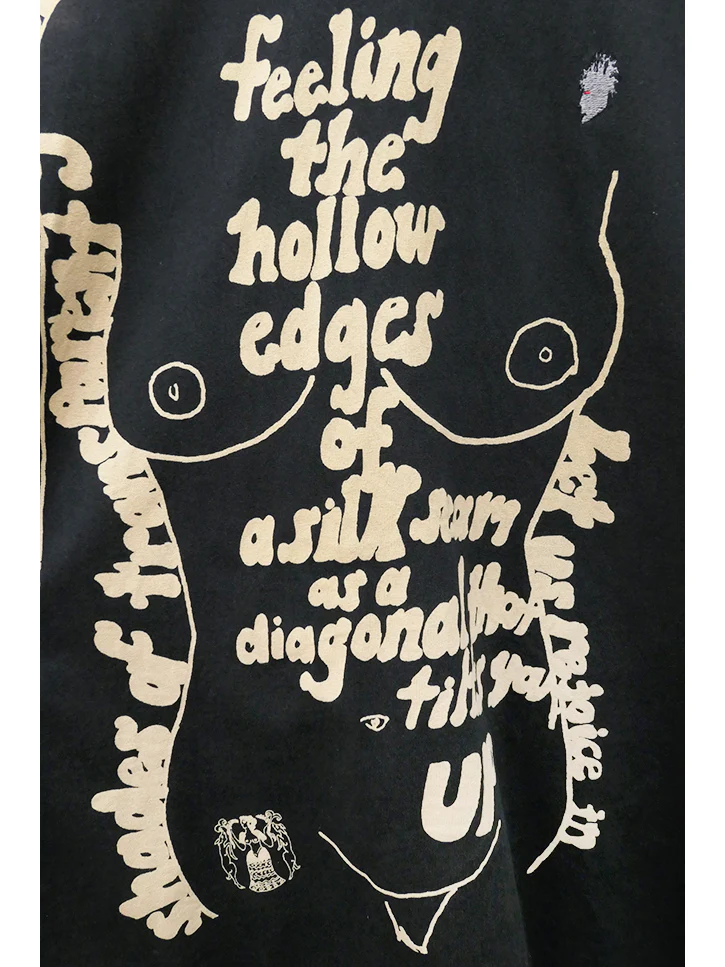 feeling
the
hollow
edges
of
a silk scarf
as a
diagonal that
tilts you
up
Let us rejoice in
shapes of